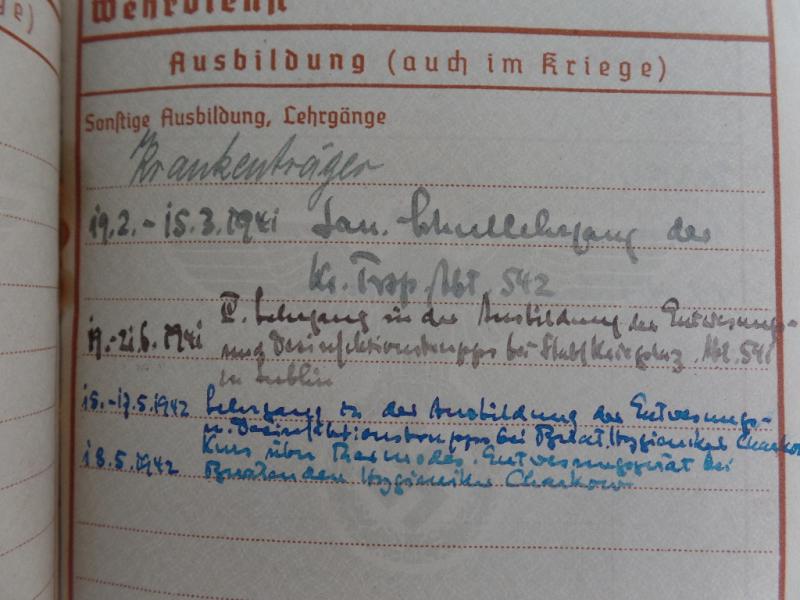 Wehrdienst
Ausbildung (auch im Kriege)
Sonstige Ausbildung, Lehrgänge
Krankenträger
19.2.-15.3.1941 San. Schullehrgang der
Kr. Trsp. Abt. 542
19.-21.6.1941 IV. Lehrgang in der Ausbildung der Entwesungs-
und Desinfektionstrupps bei Kriegslaz. Abt. 541
in Lublin
15.-17.5.1942 Lehrgang in der Ausbildung der Entwesungs-
u. Desinfektionstrupps bei Berat. Hygieniker Charkow
18.5.1942 Kurs über Entwesungsgerät bei
Beratenden Hygieniker Charkow